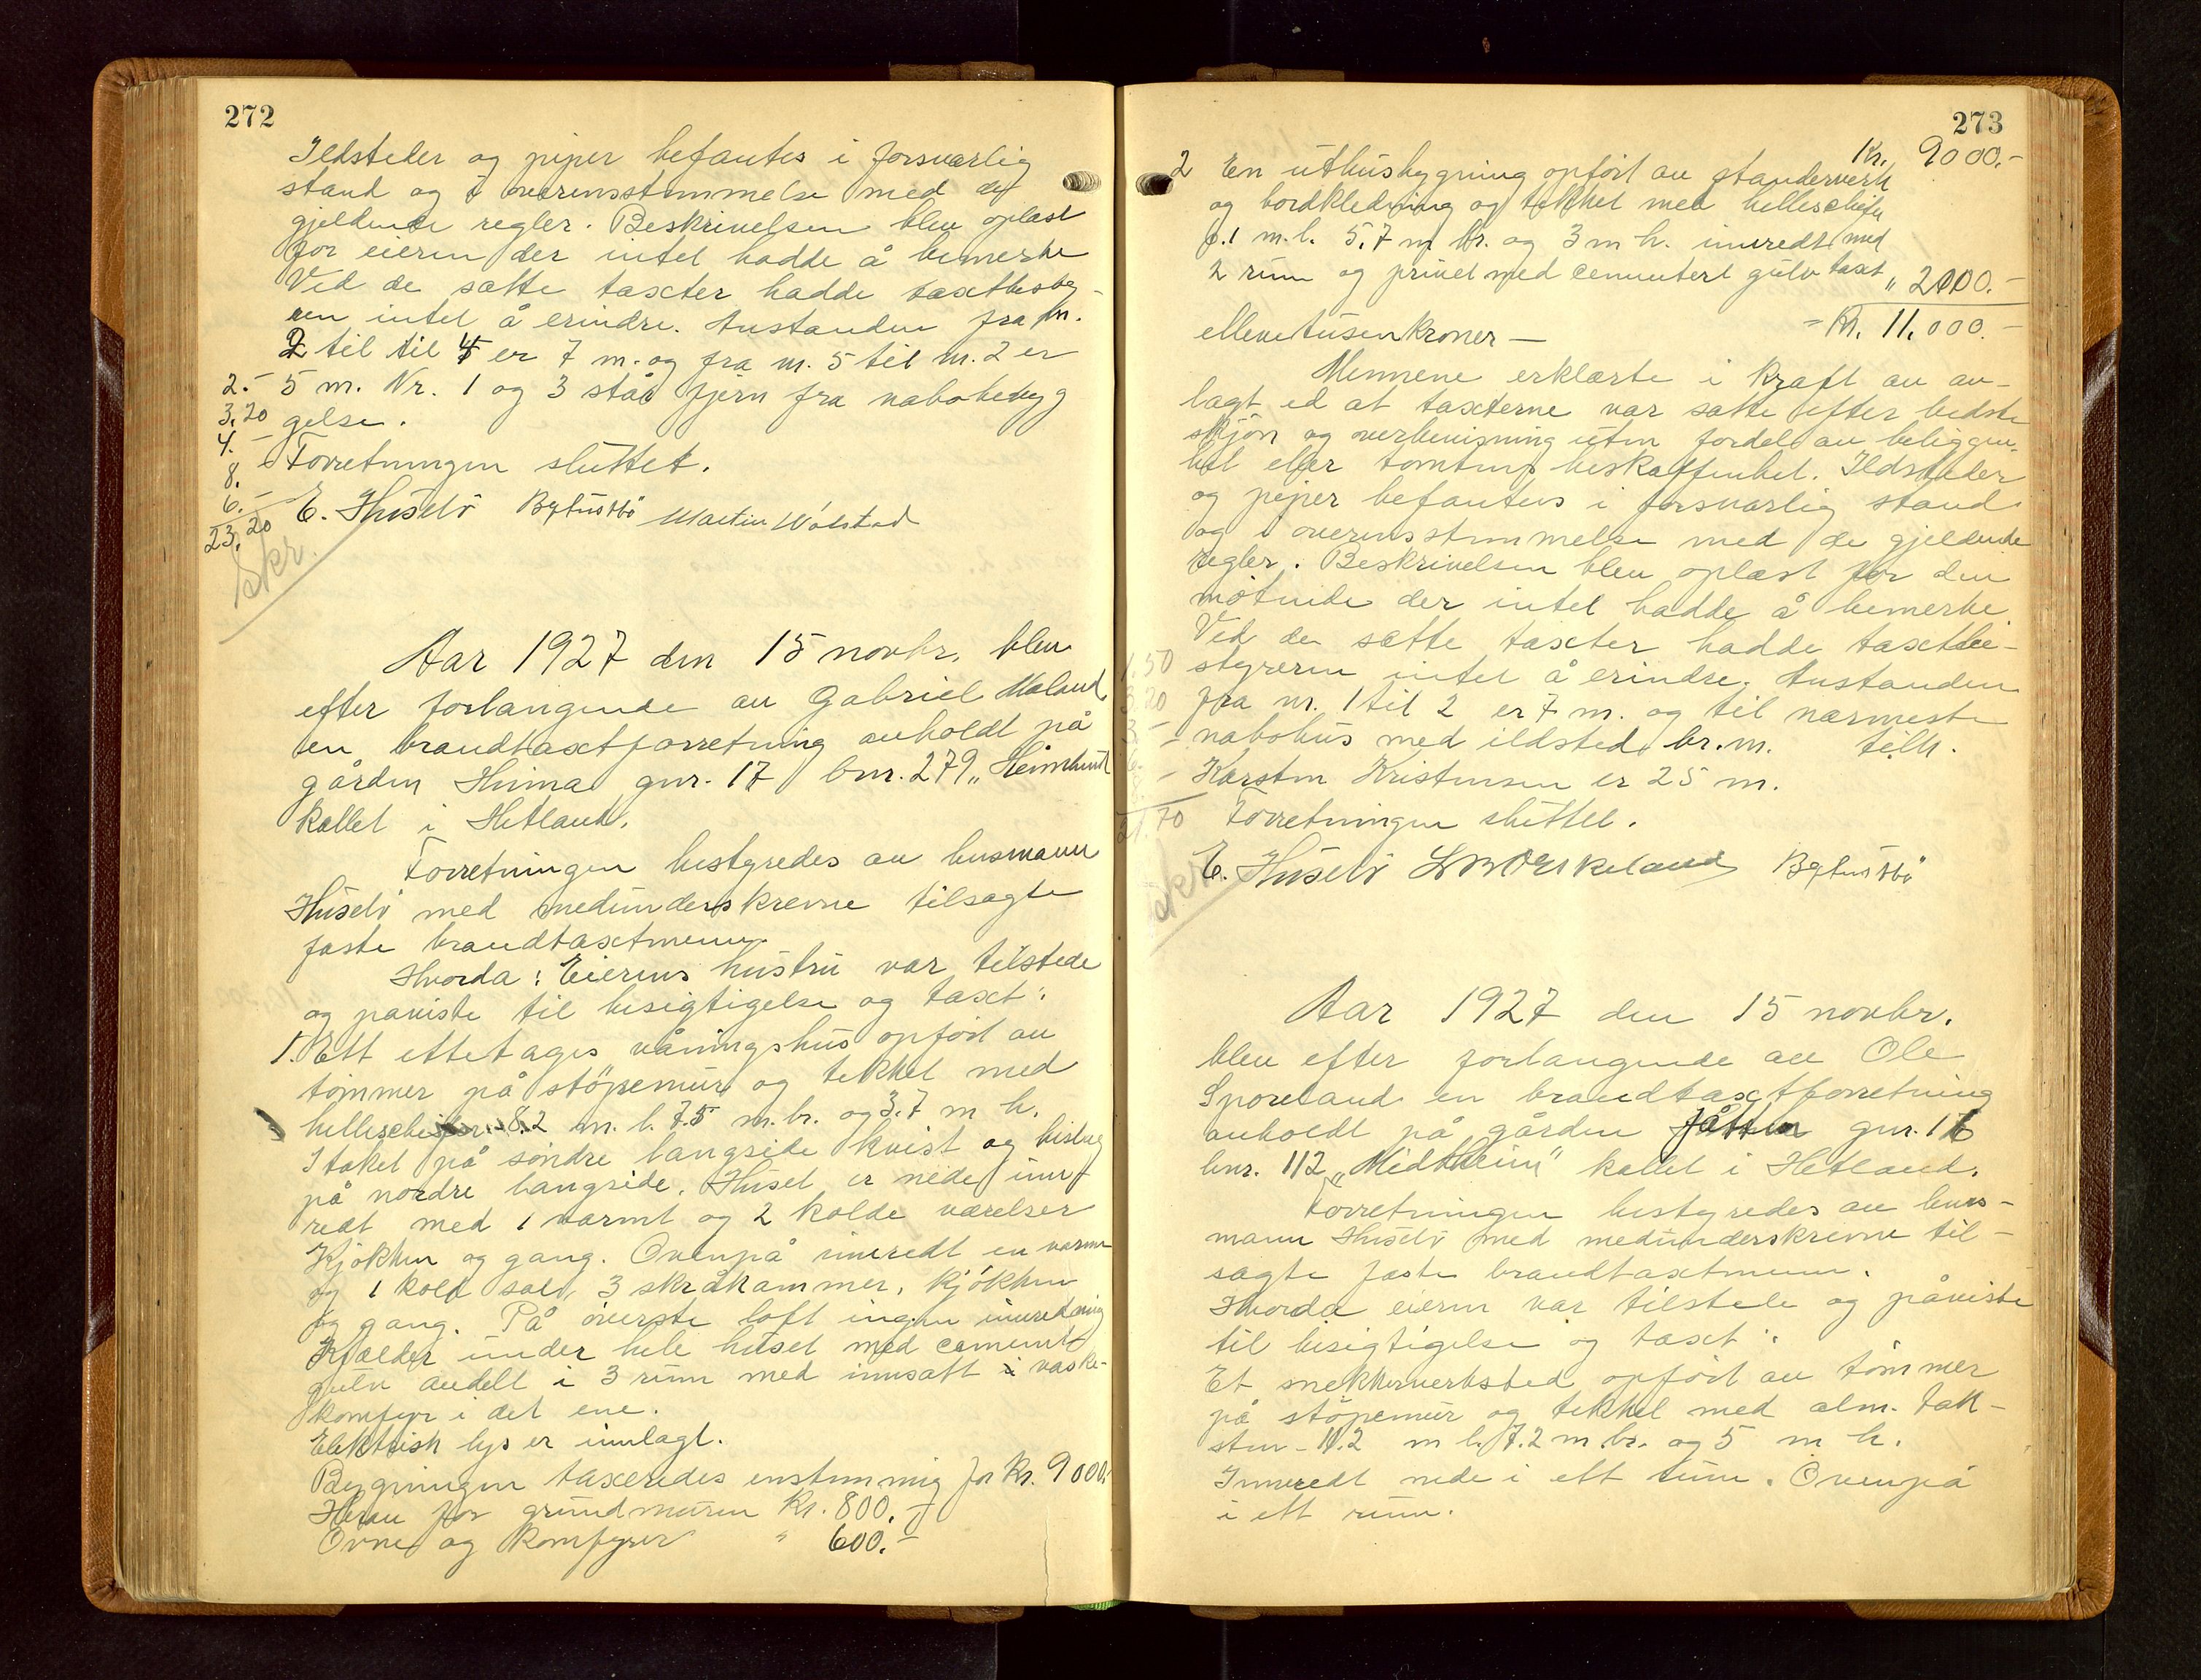 272
Ildsteder og piper befantes i forsvarlig
stand og i overensstemmelse med de
gjeldende regler. Beskrivelsen blev oplæst
for eieren der intet hadde å bemerke
Ved de satte taxter hadde taxtbesty-
ren intet å erindre. Avstanden fra nr.
2 til til 4 er 7 m. og fra nr. 5 til nr. 2 er
2.- 5 m. Nr. 1 og 3 står fjern fra nabobebyg
3.20 gelse.
4.-
8. Forretningen sluttet.
6.-
23.20 E. Huselø Martin Wølstad
Skr.
Aar 1927 den 15 novbr. blev
efter forlangende av Gabriel Maland
en brandtaxtforretning avholdt på
gården Hinna gnr. 17 bnr. 279 "Heimlund
kallet i Hetland.
Forretningen bestyredes av lensmann
Huselø med medunderskrevne tilsagte
faste brandtaxtmenn.
Hvorda: Eierens hustru var tilstede
og paviste til besigtigelse og taxt:
1. Ett ettetages våningshus opført av
tømmer på støpemur og tekket med
helleskifer. 8.2 m. l. 7.5 m. br. og 3.7 m h.
I taket på søndre langside kvist og bislag
på nordre langside. Huset er nede inn-
redt med 1 varmt og 2 kolde værelser
Kjøkken og gang. Ovenpå innredt en varm
og 1 kold sal, 3 skråkammer, kjøkken
og gang. På øverste loft ingen innredning
Kjælder under hele huset med cement
gulv avdelt i 3 rum med innsatt i vaske-
komfyr i det ene.
Elektrisk lys er innlagt.
Bygningen taxeredes enstemmig for Kr. 9000.-
Herav for grundmuren Kr. 800.-
Ovner og komfyrer " 600.-
273
Kr. 9000.-
2 En uthusbygning opført av standerverk
og bordkledning og tekket med helleskifer
6.1 m. l. 5.7 m br. og 3 m h. innredt med
2 rum og privet med cementert gulv taxt " 2000.-
ellevetusenkroner — = Kr. 11.000.-
Mennene erklærte i kraft av av-
lagt ed at taxterne var satte efter bedste
skjøn og overbevisning uten fordel av beliggen-
het eller tomtens beskaffenhet. Ildsteder
og piper befantes i forsvarlig stand
og i overensstemmelse med de gjeldende
regler. Beskrivelsen blev oplæst for den
møtende der intet hadde å bemerke
Ved de satte taxter hadde taxtbe-
1.50 styreren intet å erindre. Avstanden
3.20 fra nr. 1 til 2 er 7 m. og til nærmeste
3.- nabohus med ildsted br. m. tilh.
6.- Karsten Kristensen er 25 m.
21.70 Forretningen sluttet.
E. Huselø
Skr.
Aar 1927 den 15 novbr.
blev efter forlangende av Ole
Sporeland en brandtaxtforretning
avholdt på gården Jåtten gnr. 16
bnr. 112 "Midtheim" kallet i Hetland.
Forretningen bestyredes av lens-
mann Huselø med medunderskrevne til-
sagte faste brandtaxtmenn.
Hvorda eieren var tilstede og påviste
til besigtigelse og taxt:
Et snekkerverksted opført av tømmer
på støpemur og tekket med alm. tak-
sten - 11.2 m l. 7.2 m. br. og 5 m h.
Innredt nede i ett rum. Ovenpå
i ett rum.